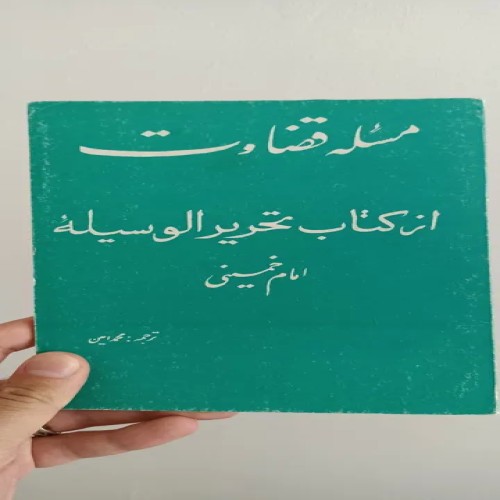 مسئله قضاوت
از کتاب تحریر الوسیلهٔ
امام خمینی
ترجمه : محمد امین